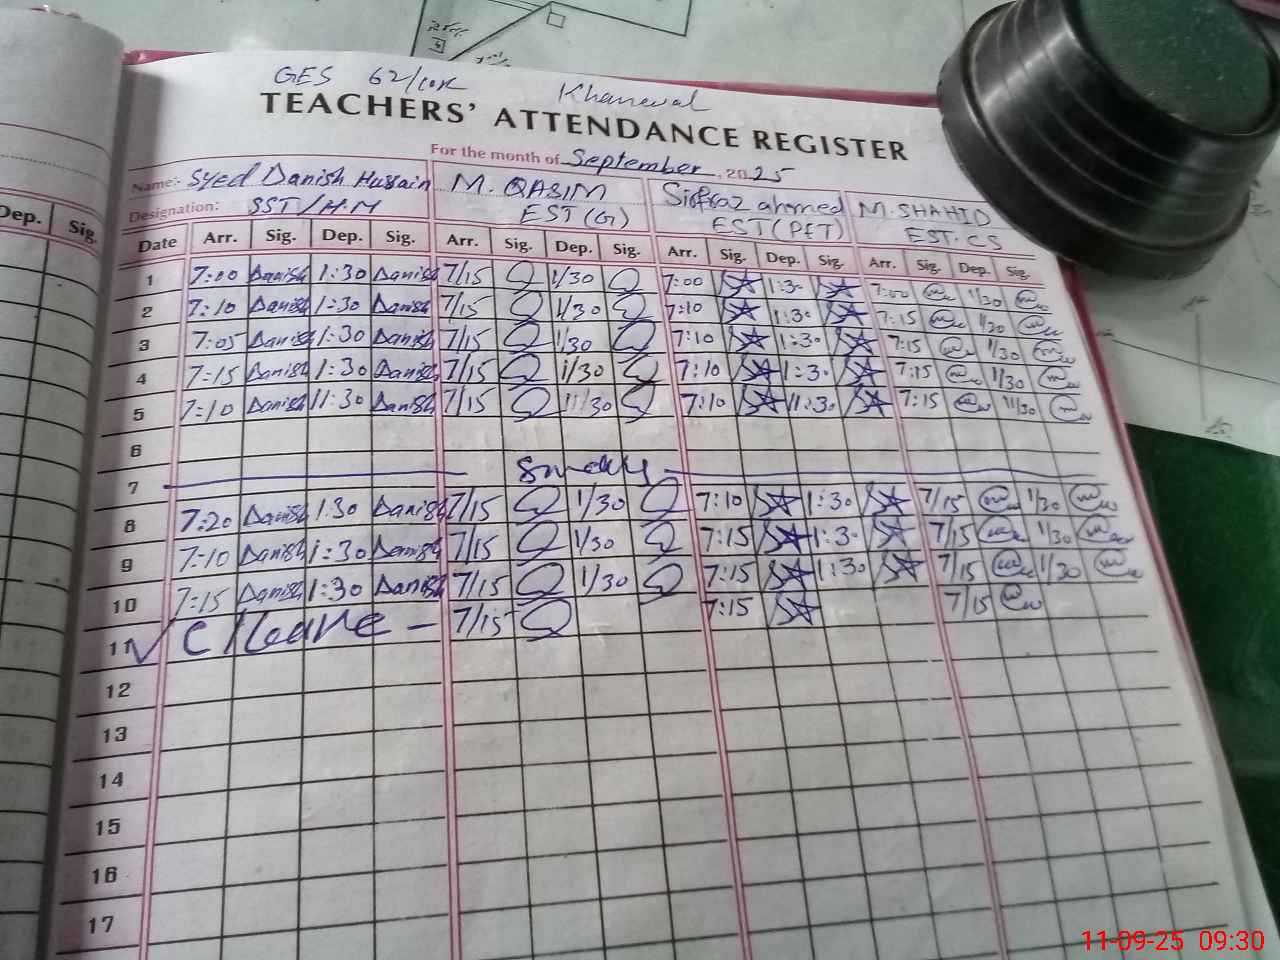 GES 62/10R Khanewal
TEACHERS' ATTENDANCE REGISTER
For the month of September, 2025
Name:- Syed Danish Hussain M. QASIM Sirfraz ahmed M. SHAHID
Designation: SST/H.M EST(G) EST(PET) EST.CS
Dep. Sig.
Date Arr. Sig. Dep. Sig. Arr. Sig. Dep. Sig. Arr. Sig. Dep. Sig. Arr. Sig. Dep. Sig.
1 7:00 Danish 1:30 Danish 7/15 1/30 7:00 1:30 7:00 1/30
2 7:10 Danish 1:30 Danish 7/15 1/30 7:10 1:30 7:15 1/30
3 7:05 Danish 1:30 Danish 7/15 1/30 7:10 1:30 7:15 1/30
4 7:15 Danish 1:30 Danish 7/15 1/30 7:10 1:30 7:15 1/30
5 7:10 Danish 11:30 Danish 7/15 11/30 7:10 11:30 7:15 11/30
6
7 Sunday
8 7:20 Danish 1:30 Danish 7/15 1/30 7:10 1:30 7/15 1/30
9 7:10 Danish 1:30 Danish 7/15 1/30 7:15 1:30 7/15 1/30
10 7:15 Danish 1:30 Danish 7/15 1/30 7:15 1:30 7/15 1/30
11 C/Leave - 7/15 7:15 7/15
12
13
14
15
16
17
11-09-25 09:30